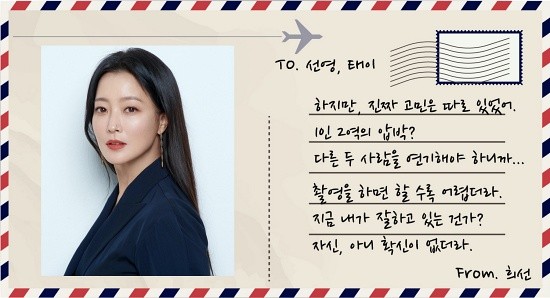 TO. 선영, 태이
하지만, 진짜 고민은 따로 있었어.
1인 2역의 압박?
다른 두 사람을 연기해야 하니까...
촬영을 하면 할 수록 어렵더라.
지금 내가 잘하고 있는 건가?
자신, 아니 확신이 없더라.
From. 희선